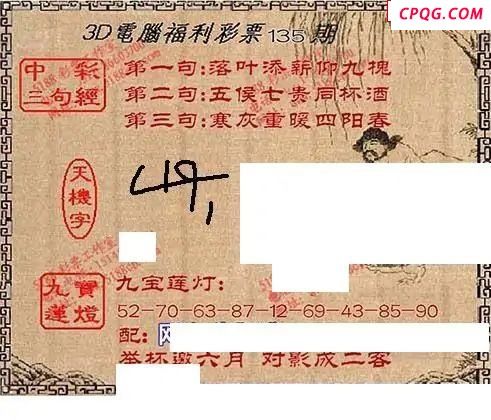 CPQG.COM
3D電腦福利彩票135期
中彩
三句經
第一句:落叶添薪仰九槐
第二句:五侯七贵同杯酒
第三句:寒灰重暖四阳春
天機字
九寶
蓮燈
九宝莲灯:
52-70-63-87-12-69-43-85-90
配:
举杯邀六月 对影成二客